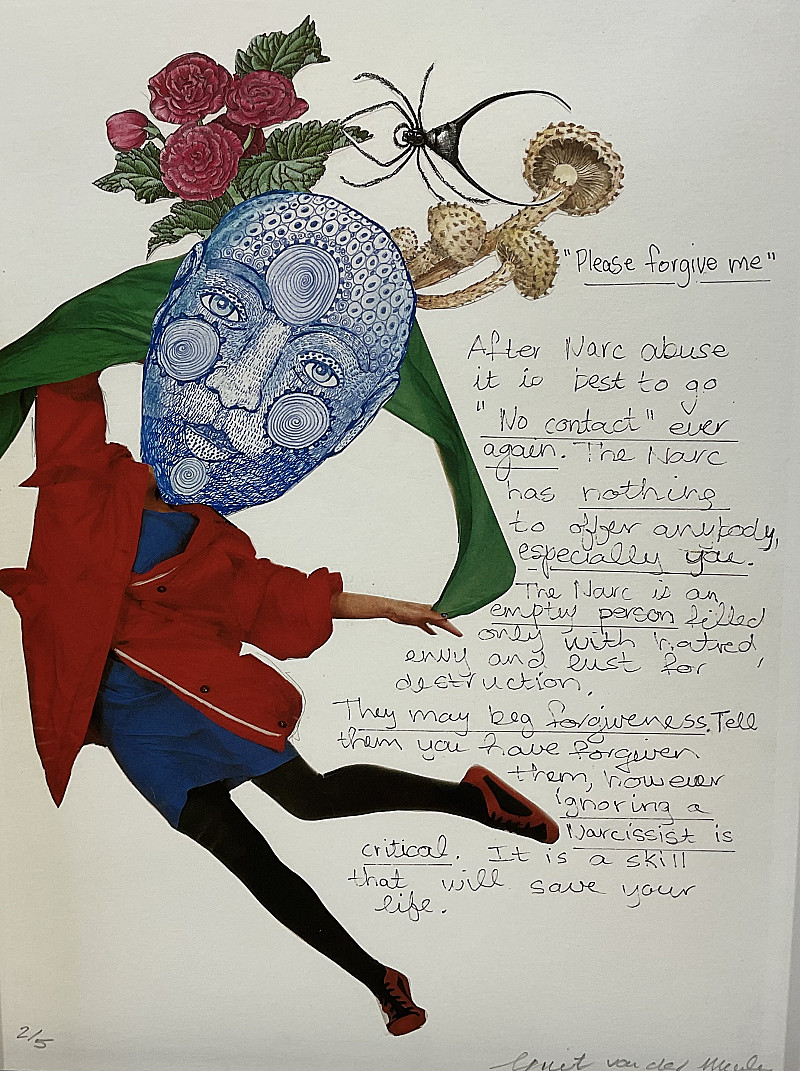 "Please forgive me"
After Narc abuse
it is best to go
"No contact" ever
again. The Narc
has nothing
to offer anybody,
especially you.
The Narc is an
empty person filled
only with hatred,
envy and lust for
destruction.
They may beg forgiveness. Tell
them you have forgiven
them, however
ignoring a
Narcissist is
critical. It is a skill
that will save your
life.
2/5
van der